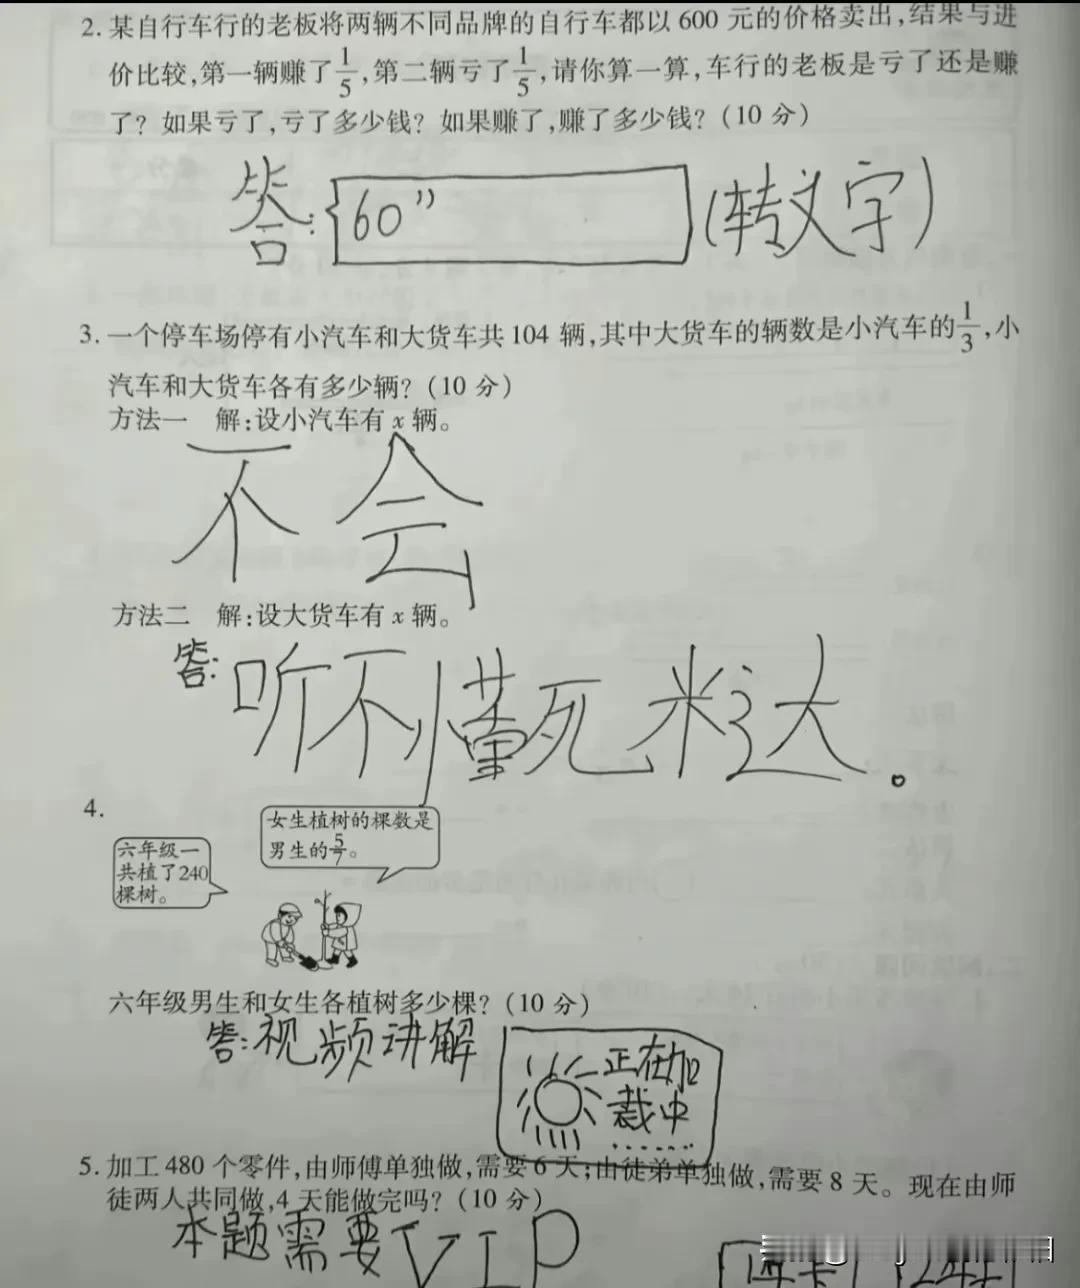 2. 某自行车行的老板将两辆不同品牌的自行车都以 600 元的价格卖出,结果与进
价比较,第一辆赚了1/5,第二辆亏了1/5,请你算一算,车行的老板是亏了还是赚
了？如果亏了,亏了多少钱？如果赚了,赚了多少钱？(10 分)
答:60” (转文字)
3. 一个停车场停有小汽车和大货车共 104 辆,其中大货车的辆数是小汽车的1/3,小
汽车和大货车各有多少辆？(10 分)
方法一 解:设小汽车有 x 辆。
不会
方法二 解:设大货车有 x 辆。
答:听不懂死米达。
4.
女生植树的棵数是
男生的5/7。
六年级一
共植了240
棵树。
六年级男生和女生各植树多少棵？(10 分)
答:视频讲解
正在加
载中
......
5. 加工 480 个零件,由师傅单独做,需要 6 天;由徒弟单独做,需要 8 天。现在由师
徒两人共同做,4 天能做完吗？(10 分)
本题需要VIP